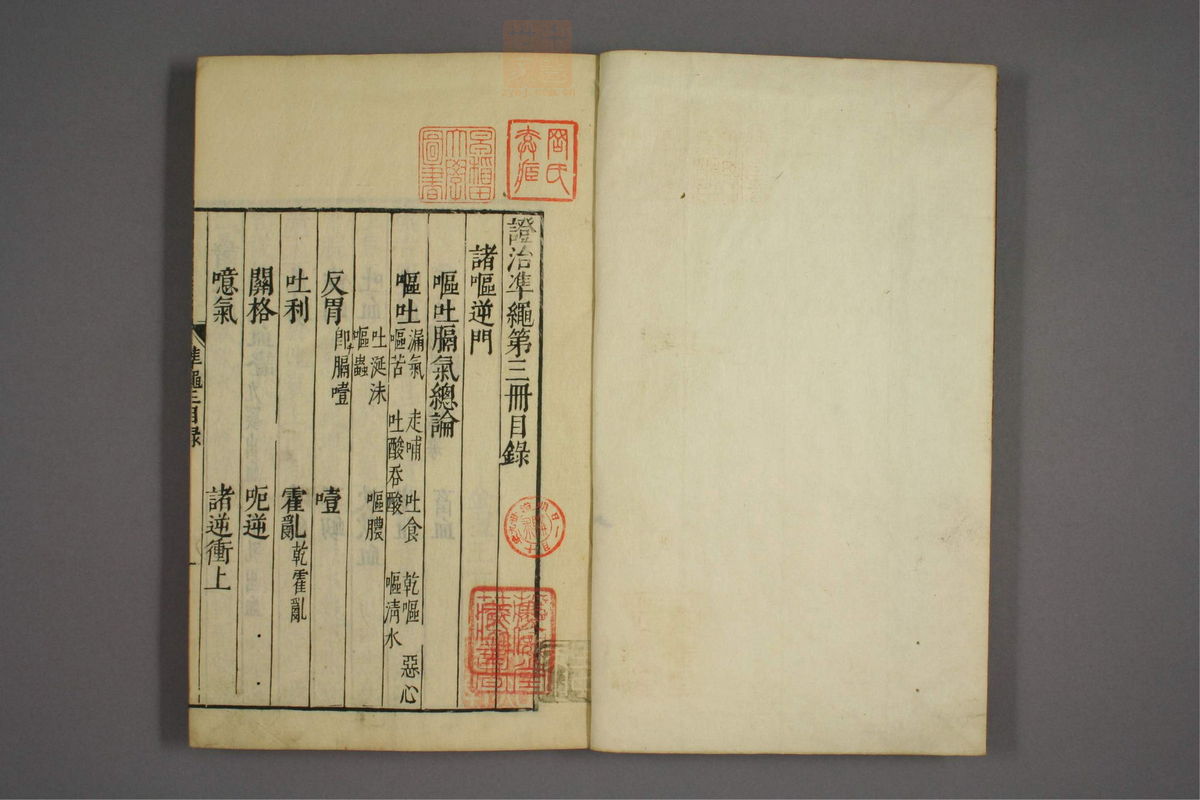 證治準繩第三冊目錄
諸嘔逆門
嘔吐膈氣總論
嘔吐 漏氣 走哺 吐食 乾嘔 惡心
嘔苦 吐酸吞酸 嘔清水
吐涎沫 嘔膿
嘔蟲
反胃 即膈噎 噎
吐利 霍亂 乾霍亂
關格 呃逆
噫氣 諸逆衝上
準繩三目錄
早稻田大學圖書